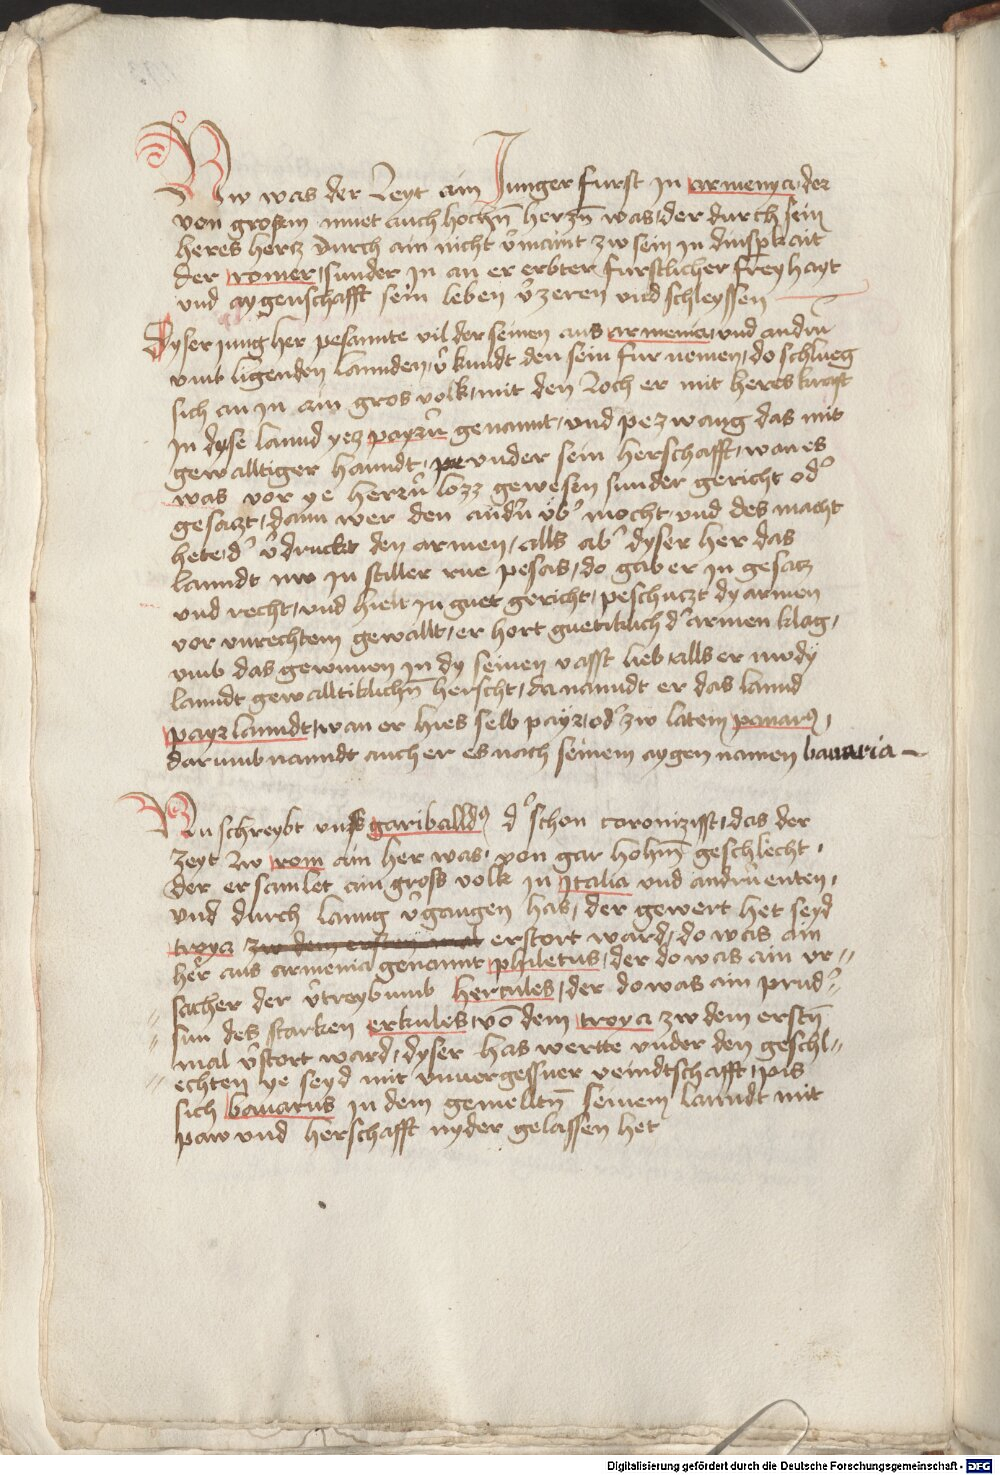 Nw was der Zeyt ain Junger furst In armenya der
von grossem muet auch hochen̄ herzn̄ was, der durch sein
heres hertz durch ain nicht v̓maint zw sein in dinspkait
der romer, sunder In an er erbter furstlicher freyhayt
und aygenschafft sein leben v̓zeren und schleyssen
Dyser jung her pesannte vil der seinen aus armenia, und andrn̄
umb ligenden lannden, v̓kundt den sein furnemen, do schlueg
sich an In ain gros volk, mit den Zoch er mit heres kraft
In dyse lannd yez payrn̄ genannt, und pezwang das mit
gewalltiger hanndt, under sein herschafft, wan es
was vor ye herrn̄ lozz gewesen sunder gericht od̓
gesatzt, dann wer den andn̄ vb̓ mocht, und des macht
hete, d̓ v̓druckt den armen, alls ab̓ dyser her das
lanndt nw In stiller rue pesas, do gab er In gesatz
und recht, und hielt In guet gericht, peschutzt dy armen
vor unrechtem gewallt, er hort guetiklich d̓ armen klag,
umb das gewunnen In dy seinen vasst lieb, alls er nw dy
lanndt gewalltiklichn̄ herscht, da nanndt er das lannd
payrlanndt, wan er hies selb payr, od̓ zw latein pauarꝰ,
darumb nanndt auch er es nach seinem aygen namen bauaria
Nun schreybt unss gariballdꝰ d̓ schon coronizisst, das der
Zeyt Zw rom ain her was, von gar hohm̄ geschlecht,
der er samlet ain gross volk in Italia und andrn̄ enten,
und durch lanng v̓gangen has, der gewert het seyd
troya zw dem ersten mal erstort ward, do was ain
her̓ aus armenia genannt philetus, der do was ain ur//
sacher der v̓treybumb hercules, der do was ain prud̓//
sun des starken erkules, vō dem troya zw dem erstn̄
mal v̓stort ward, dyser has wertte under den geschl//
echten ye seyd mit unuergessner veindtschafft, pis
sich bauarus in dem gemelltn̄ seinem lanndt mit
paw und herschafft nyder gelassen het
Digitalisierung gefördert durch die Deutsche Forschungsgemeinschaft - DFG